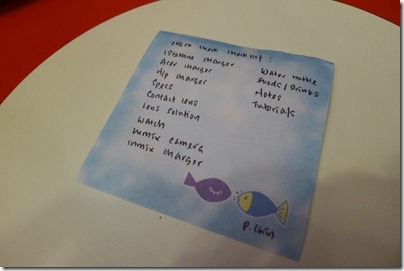 check check checklist :
charger
Acer charger
Hp charger
Specs
Contact lens
Lens solution
Watch
camera
charger
Water bottle
Foods/Drinks
Notes
Tutorials
P. Chin